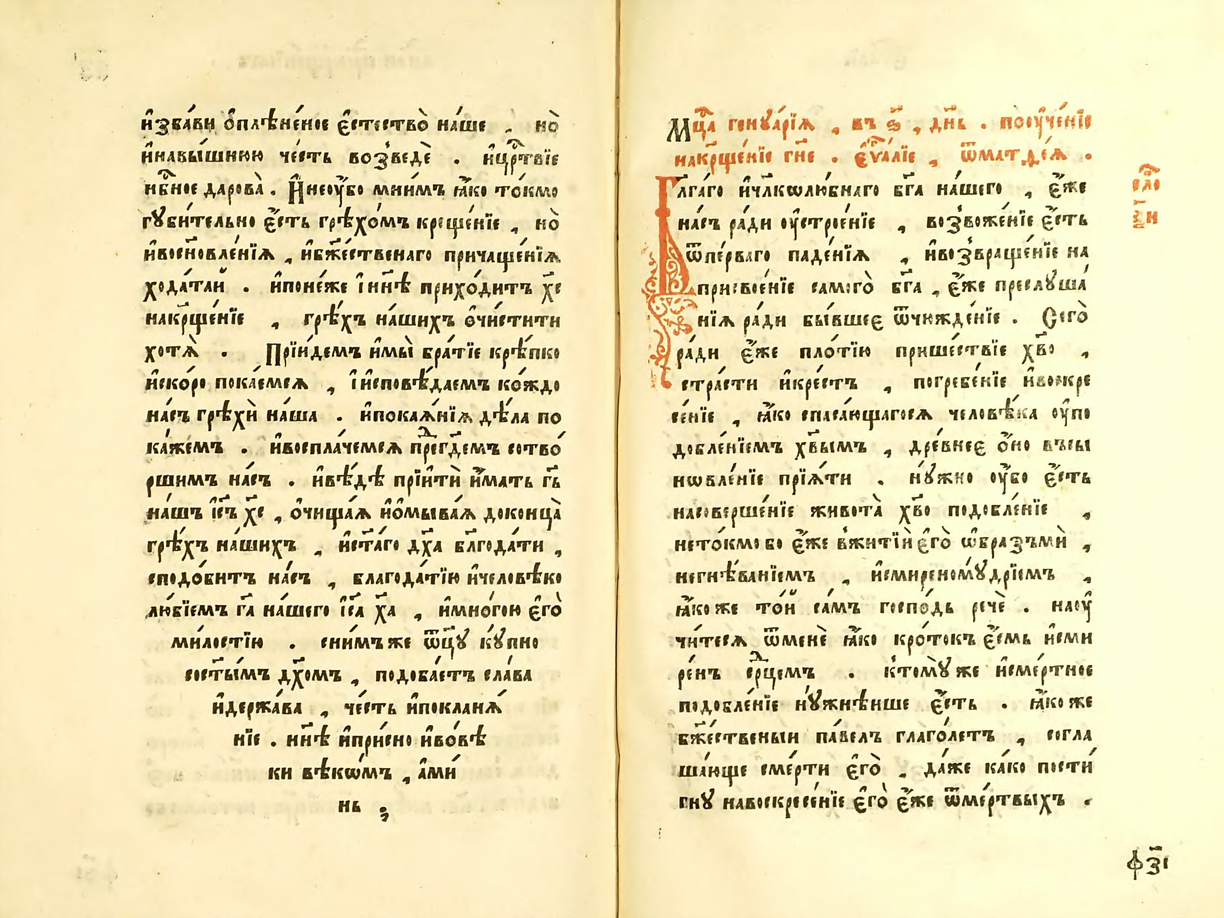 и҆зба́ви ѻ҆плѣне́ное є҆стество̀ на́ше , но̀
и҆навы́шнюю че́сть возведѐ . и҆црⷭ҇твїе
нбⷭ҇ное дарова̀ . И҆неᲂу҆́бо мни́мъ ꙗ҆́ко то́кмо
гꙋби́тельно є҆́сть грѣхо́мъ кр҃ще́нїе , но̀
и҆вᲂенᲂвле́нїѧ , и҆бж҃е́ственаго причаще́нїѧ
хода́тай . и҆поне́же і҆нн҃ѣ прихо́дитъ хс҃
накрⷭ҇ще́нїе , грѣ́хъ на́шихъ ѻ҆чи́стити
хотѧ̀ . Прїи́демъ и҆мы̀ бра́тїе крѣ́пко
и҆ско́ро пока́емсѧ , і҆и҆сповѣ́даемъ ко́ждо
на́съ грѣхѝ на́ша . и҆покаѧ́нїѧ дѣ́ла по
ка́жемъ . и҆воспла́чемсѧ преⷣгдⷭ҇емъ сотво́
ршимъ на́съ . и҆вѣ́дѣ прїитѝ и҆́мать гь҃
на́шъ і҆с҃ъ хс҃ , ѻ҆чища́ѧ и҆ѻ҆мыва́ѧ доконца̀
грѣ́хъ на́шихъ , и҆ст҃а́го дх҃а блг҃ода́ти ,
сподо́битъ на́съ , благода́тїю и҆человѣ́ко
лю́бїемъ га҃ на́шего і҆с҃а ха҃ , и҆мно́гою є҆го̀
ми́лостїю . сни́мъже ѿц҃ꙋ̀ кꙋ́пно
сост҃ы́мъ дх҃омъ , подоба́етъ сла́ва
и҆держа́ва , че́сть и҆покланѧ́
нїе . нн҃ѣ и҆при́сно и҆вовѣ́
ки вѣкѡ́мъ , а҆ми́
нь ;
Мцⷭ҇а генꙋа́рїѧ , въ ѕ҃ , де́нь . поᲂуче́нїе
накрⷭ҇ще́нїе гнⷭ҇е . є҆ѵⷢ҇а́лїе , ѿматѳе́ѧ .
Бл҃га́го и҆члкѡлюби́ваго бг҃а на́шего , є҆́же
на́съ ра́ди ᲂу҆строе́нїе , возвоже́нїе є҆́сть
ѿпе́рваго паде́нїѧ , и҆возвраще́нїе на
присвое́нїе самого̀ бг҃а , є҆́же преслꙋша́
нїѧ ра́ди бы́вшее ѿчюжде́нїе . Сего̀
ра́ди є҆́же пло́тїю прише́ствїе хв҃о ,
стра́сти и҆кре́стъ , погребе́нїе и҆вᲂскре
се́нїе , ꙗ҆́ко спаса́ющагосѧ человѣ́ка ᲂу҆по
добле́нїемъ хв҃ымъ , дре́внее ѻ҆́но въсы
нѡвле́нїе прїѧ́ти . нꙋ́жно ᲂу҆́бо є҆́сть
насоверше́нїе живота̀ хв҃о подобле́нїе ,
нето́кмо бо є҆́же вжитїѝ є҆го̀ ѡ҆́бразъми ,
негнѣ́ванїемъ , и҆смиреномꙋ́дрїемъ ,
ꙗ҆́коже то́й са́мъ госпо́дь речѐ . наᲂу
чи́тесѧ ѿменѐ ꙗ҆́ко кро́токъ є҆́смь и҆сми
ре́нъ срⷣцемъ . ктомꙋ́же и҆сме́ртное
подобле́нїе нꙋжнѣ́ише є҆́сть . ꙗ҆́коже
бж҃е́ственыи па́велъ глаго́летъ , согла
ша́юще сме́рти є҆го̀ , да́же ка́ко пости
гнꙋ̀ навоскресе́нїе є҆го̀ є҆́же ѿме́ртвыхъ .
фз҃і